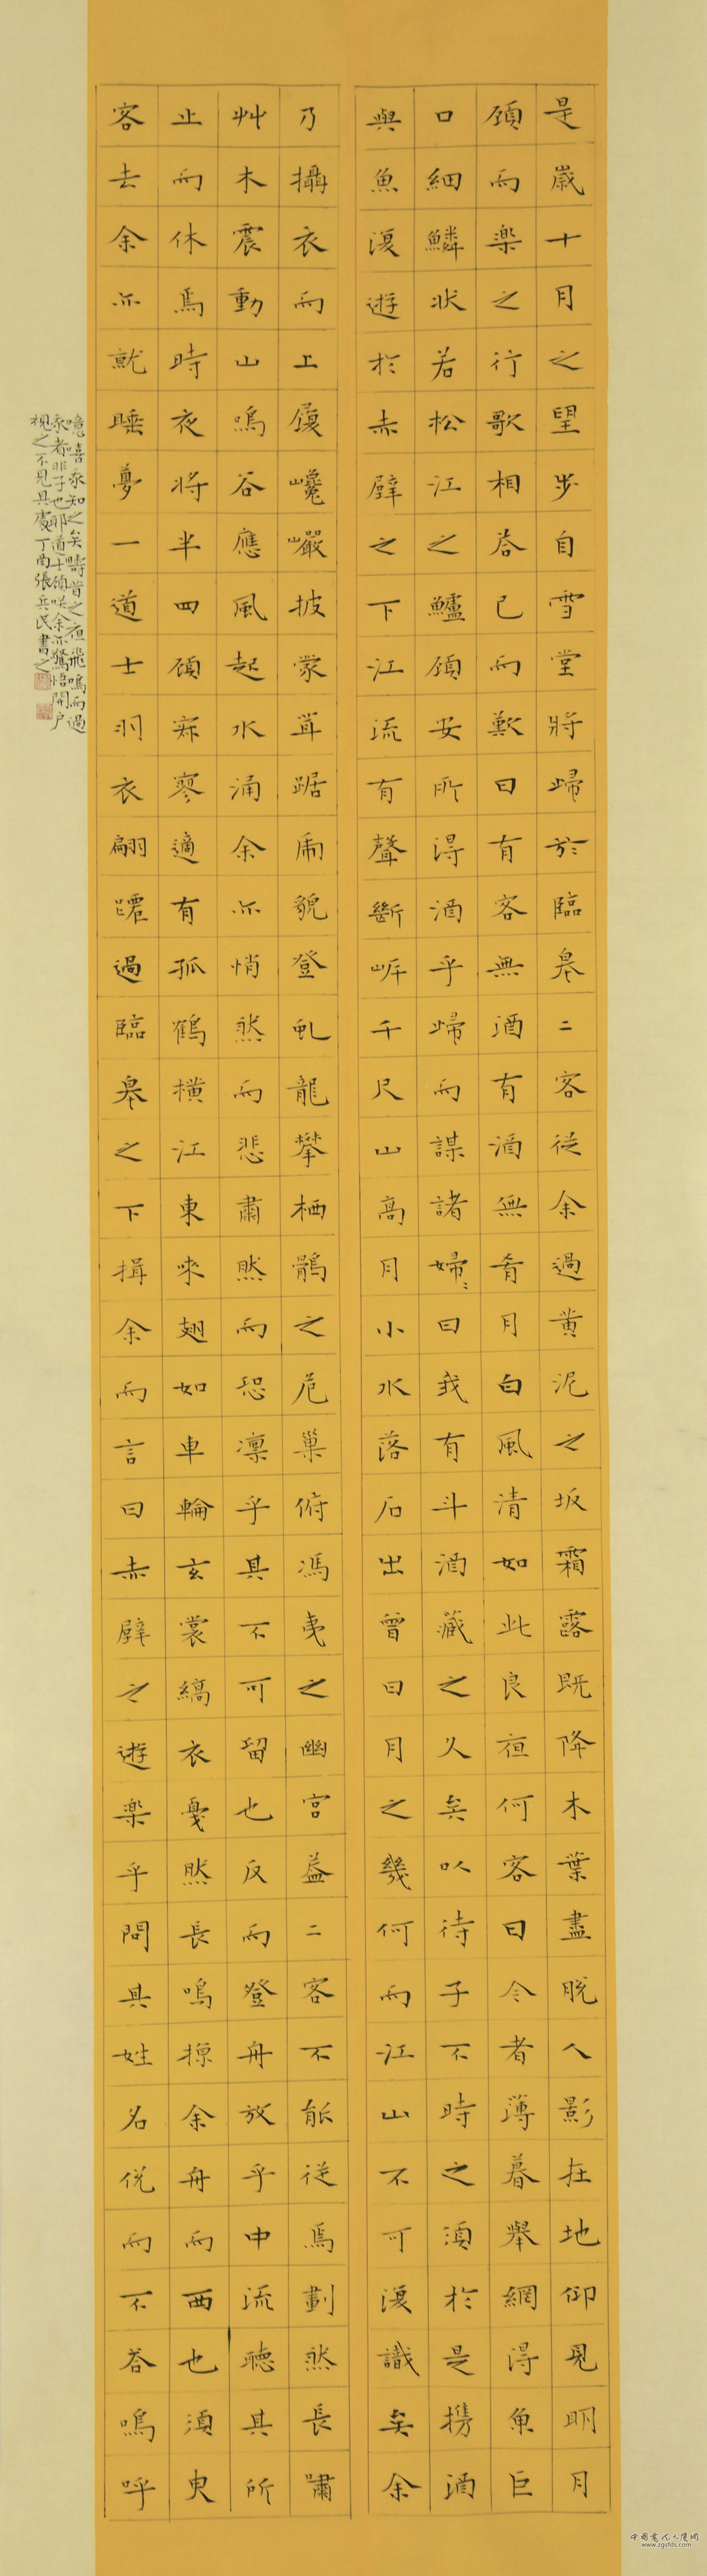 是歲十月之望步自雪堂將歸於臨皋二客從余過黄泥之坂霜露既降木葉盡脫人影在地仰見明月
顧而樂之行歌相荅已而歎曰有客無酒有酒無肴月白風清如此良夜何客曰今者薄暮舉網得魚巨
口細鱗狀若松江之鱸顧安所得酒乎歸而謀諸婦〻曰我有斗酒藏之久矣以待子不時之須於是攜酒
與魚復遊於赤壁之下江流有聲斷岸千尺山高月小水落石出曾日月之幾何而江山不可復識矣余
乃攝衣而上履巉巖披蒙茸踞虎貌登虬龍攀栖鶻之危巢俯馮夷之幽宮益二客不能從焉劃然長嘯
艸木震動山鳴谷應風起水涌余亦悄然而悲肅然而恐凜乎其不可留也反而登舟放乎中流聽其所
止而休焉時夜將半四顧寂寥適有孤鶴橫江東來翅如車輪玄裳縞衣戛然長鳴掠余舟而西也須臾
客去余亦就睡夢一道士羽衣翩躚過臨皋之下揖余而言曰赤壁之遊樂乎問其姓名俛而不荅嗚呼
噫嘻我知之矣疇昔之夜飛鳴而過
我者非子也耶道士顧笑余亦驚悟開户
視之不見其處丁酉張兵民書之
中国书法大厦网
www.zgsfds.com